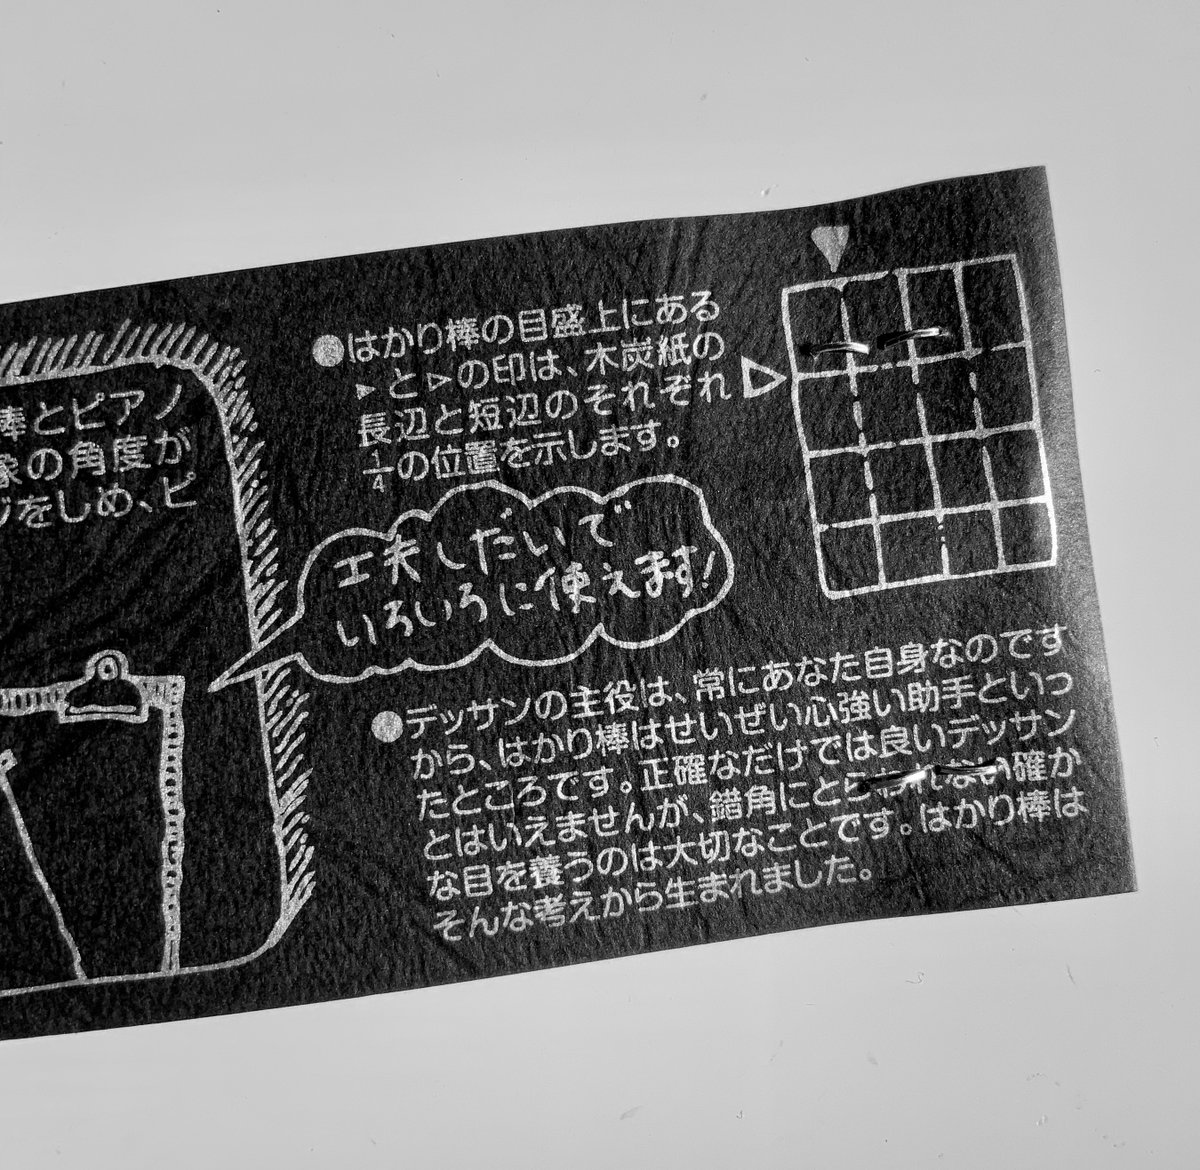 棒とピアノ
象の角度が
ジをしめ、ピ
●はかり棒の目盛上にある
▶と▷の印は、木炭紙の
長辺と短辺のそれぞれ
1/4の位置を示します。
工夫しだいで
いろいろに使えます!
●デッサンの主役は、常にあなた自身なのです
から、はかり棒はせいぜい心強い助手といっ
たところです。正確なだけでは良いデッサン
とはいえませんが、錯角にとらわれない確か
な目を養うのは大切なことです。はかり棒は
そんな考えから生まれました。